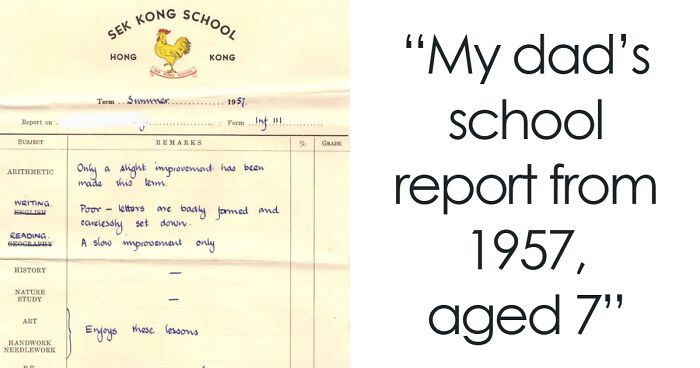 SEK KONG SCHOOL
HONG KONG
SEK KONG SCHOOL
Term Summer 1957.
Report on Form Inf III
SUBJECT REMARKS % GRADE
ARITHMETIC Only a slight improvement has been
made this term.
WRITING.
ENGLISH Poor – letters are badly formed and
carelessly set down.
READING.
GEOGRAPHY A slow improvement only
HISTORY —
NATURE
STUDY —
ART
Enjoys these lessons
HANDWORK
NEEDLEWORK
“My dad’s
school
report from
1957,
aged 7”